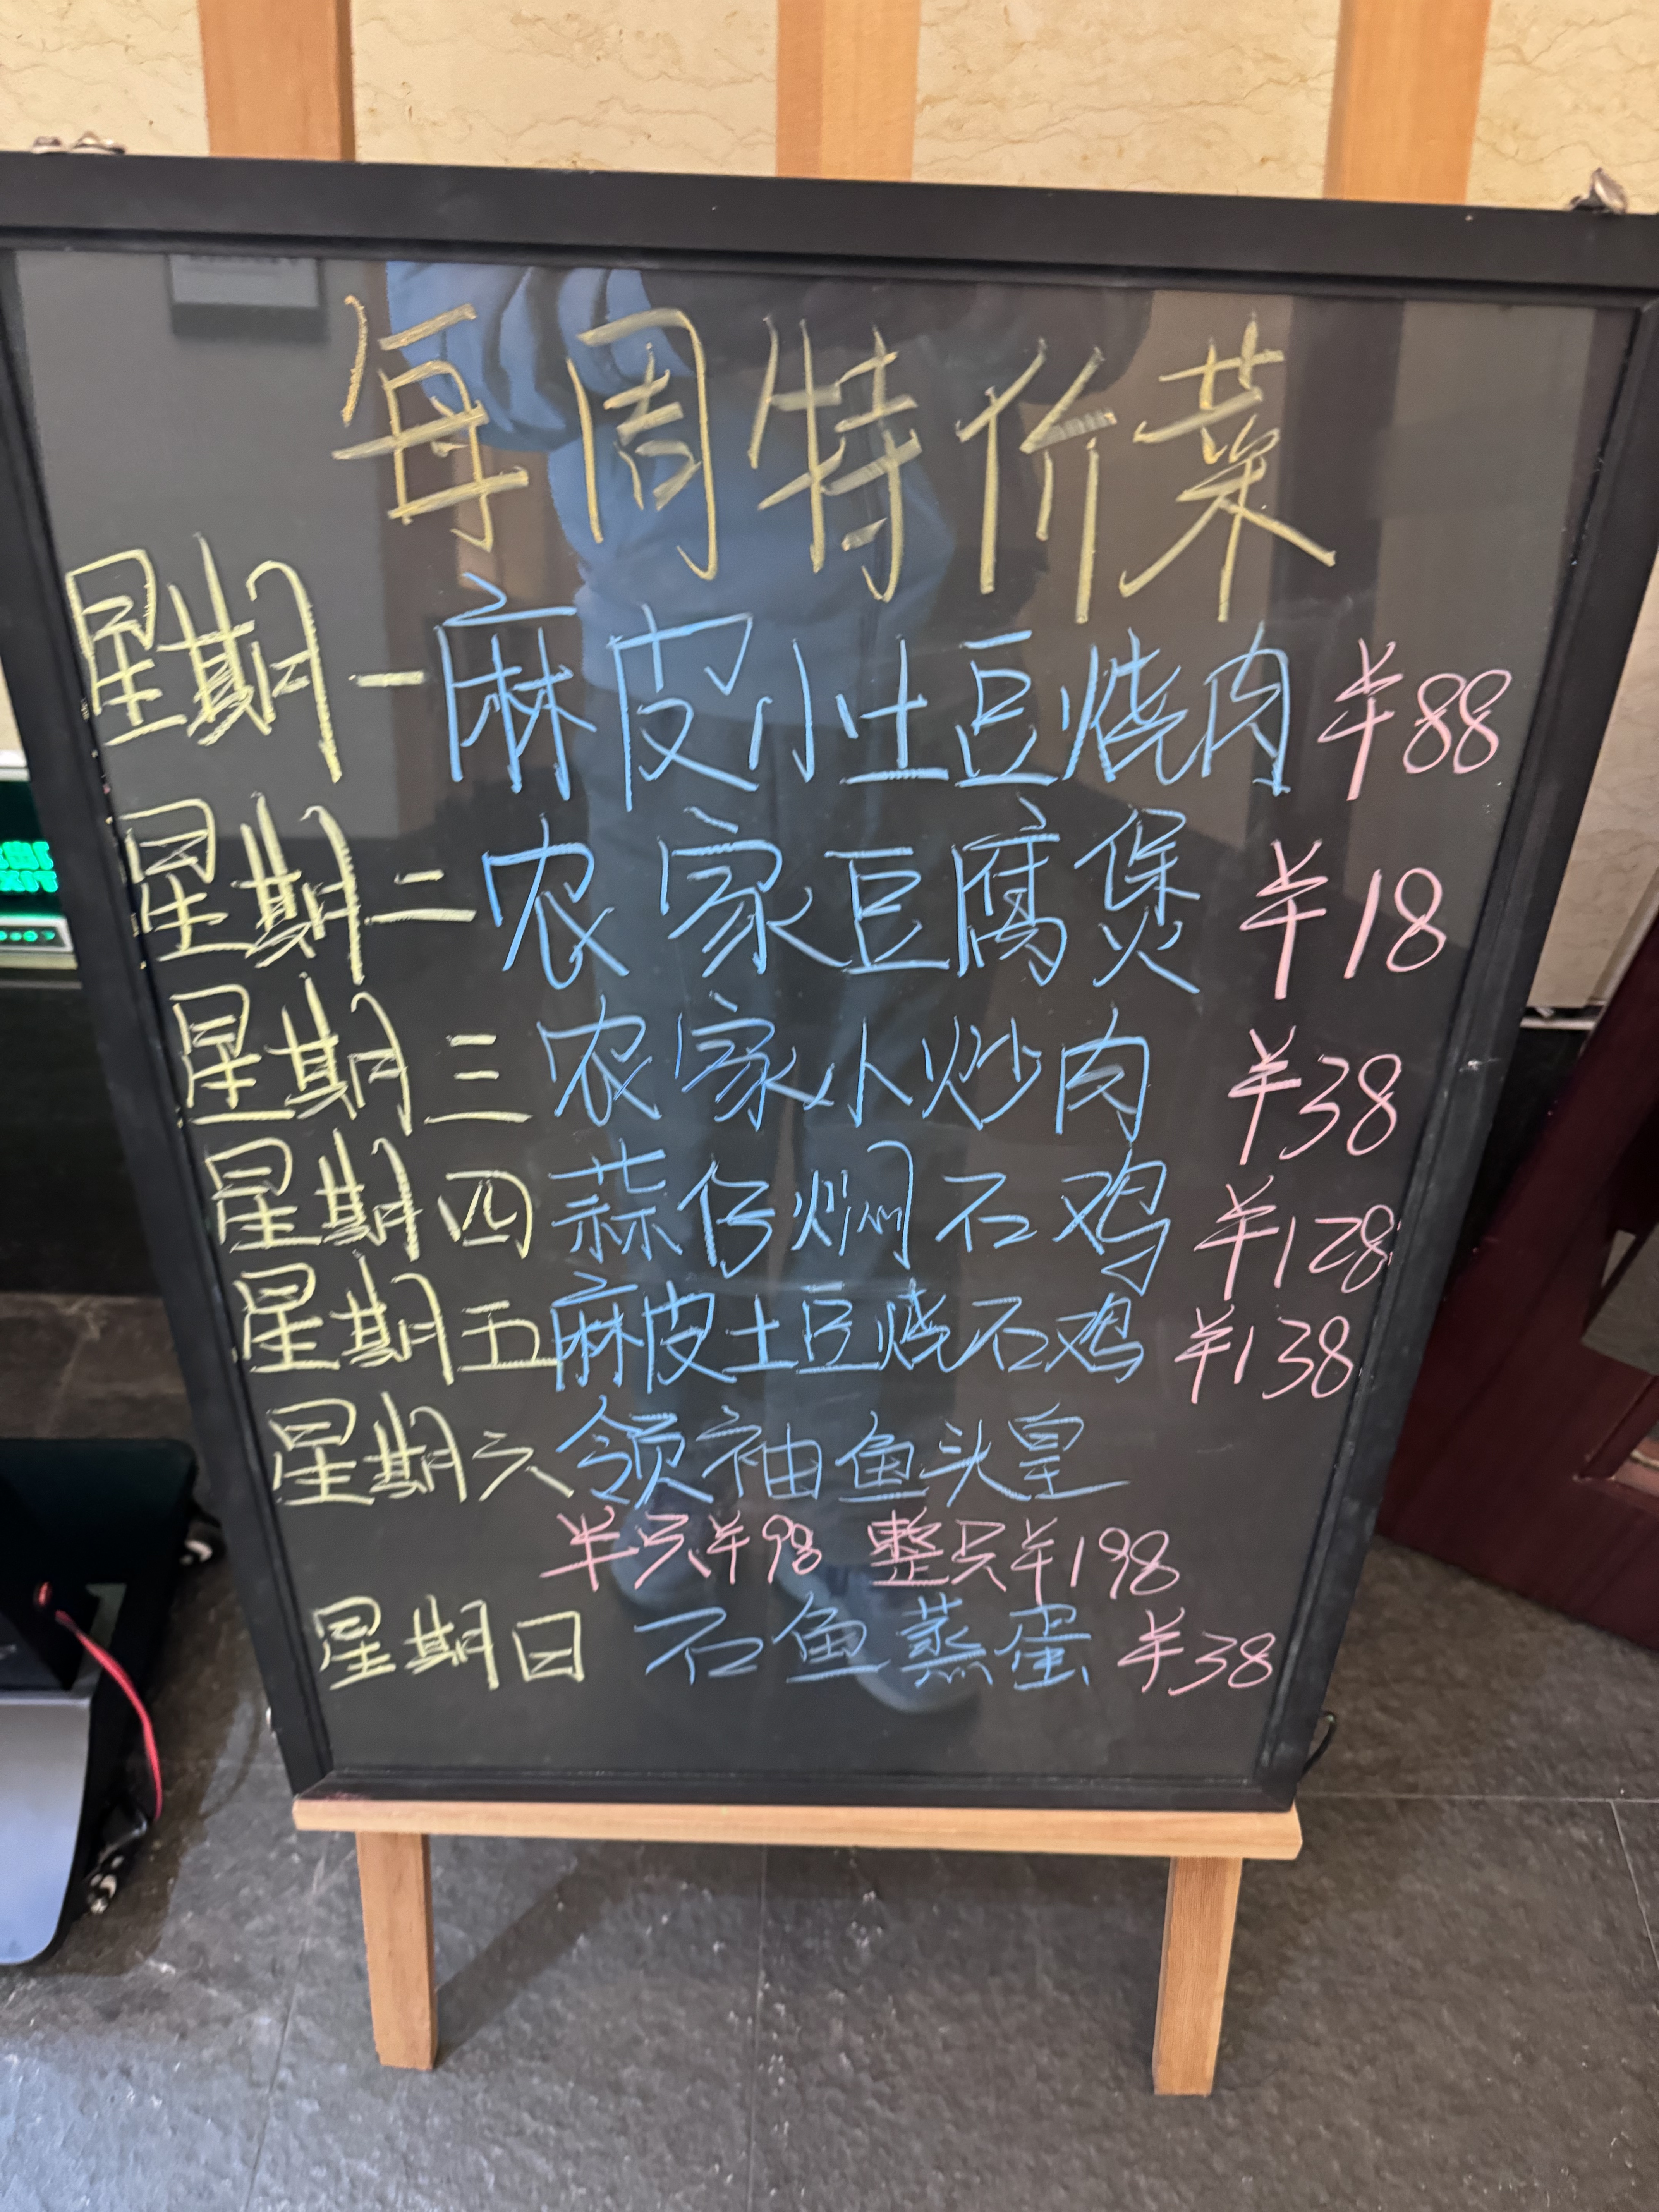 每周特价菜
星期一 麻皮小土豆烧肉 ¥88
星期二 农家豆腐煲 ¥18
星期三 农家小炒肉 ¥38
星期四 蒜仔焖石鸡 ¥128
星期五 麻皮土豆烧石鸡 ¥138
星期六 领袖鱼头皇
半只¥98 整只¥198
星期日 石鱼蒸蛋 ¥38